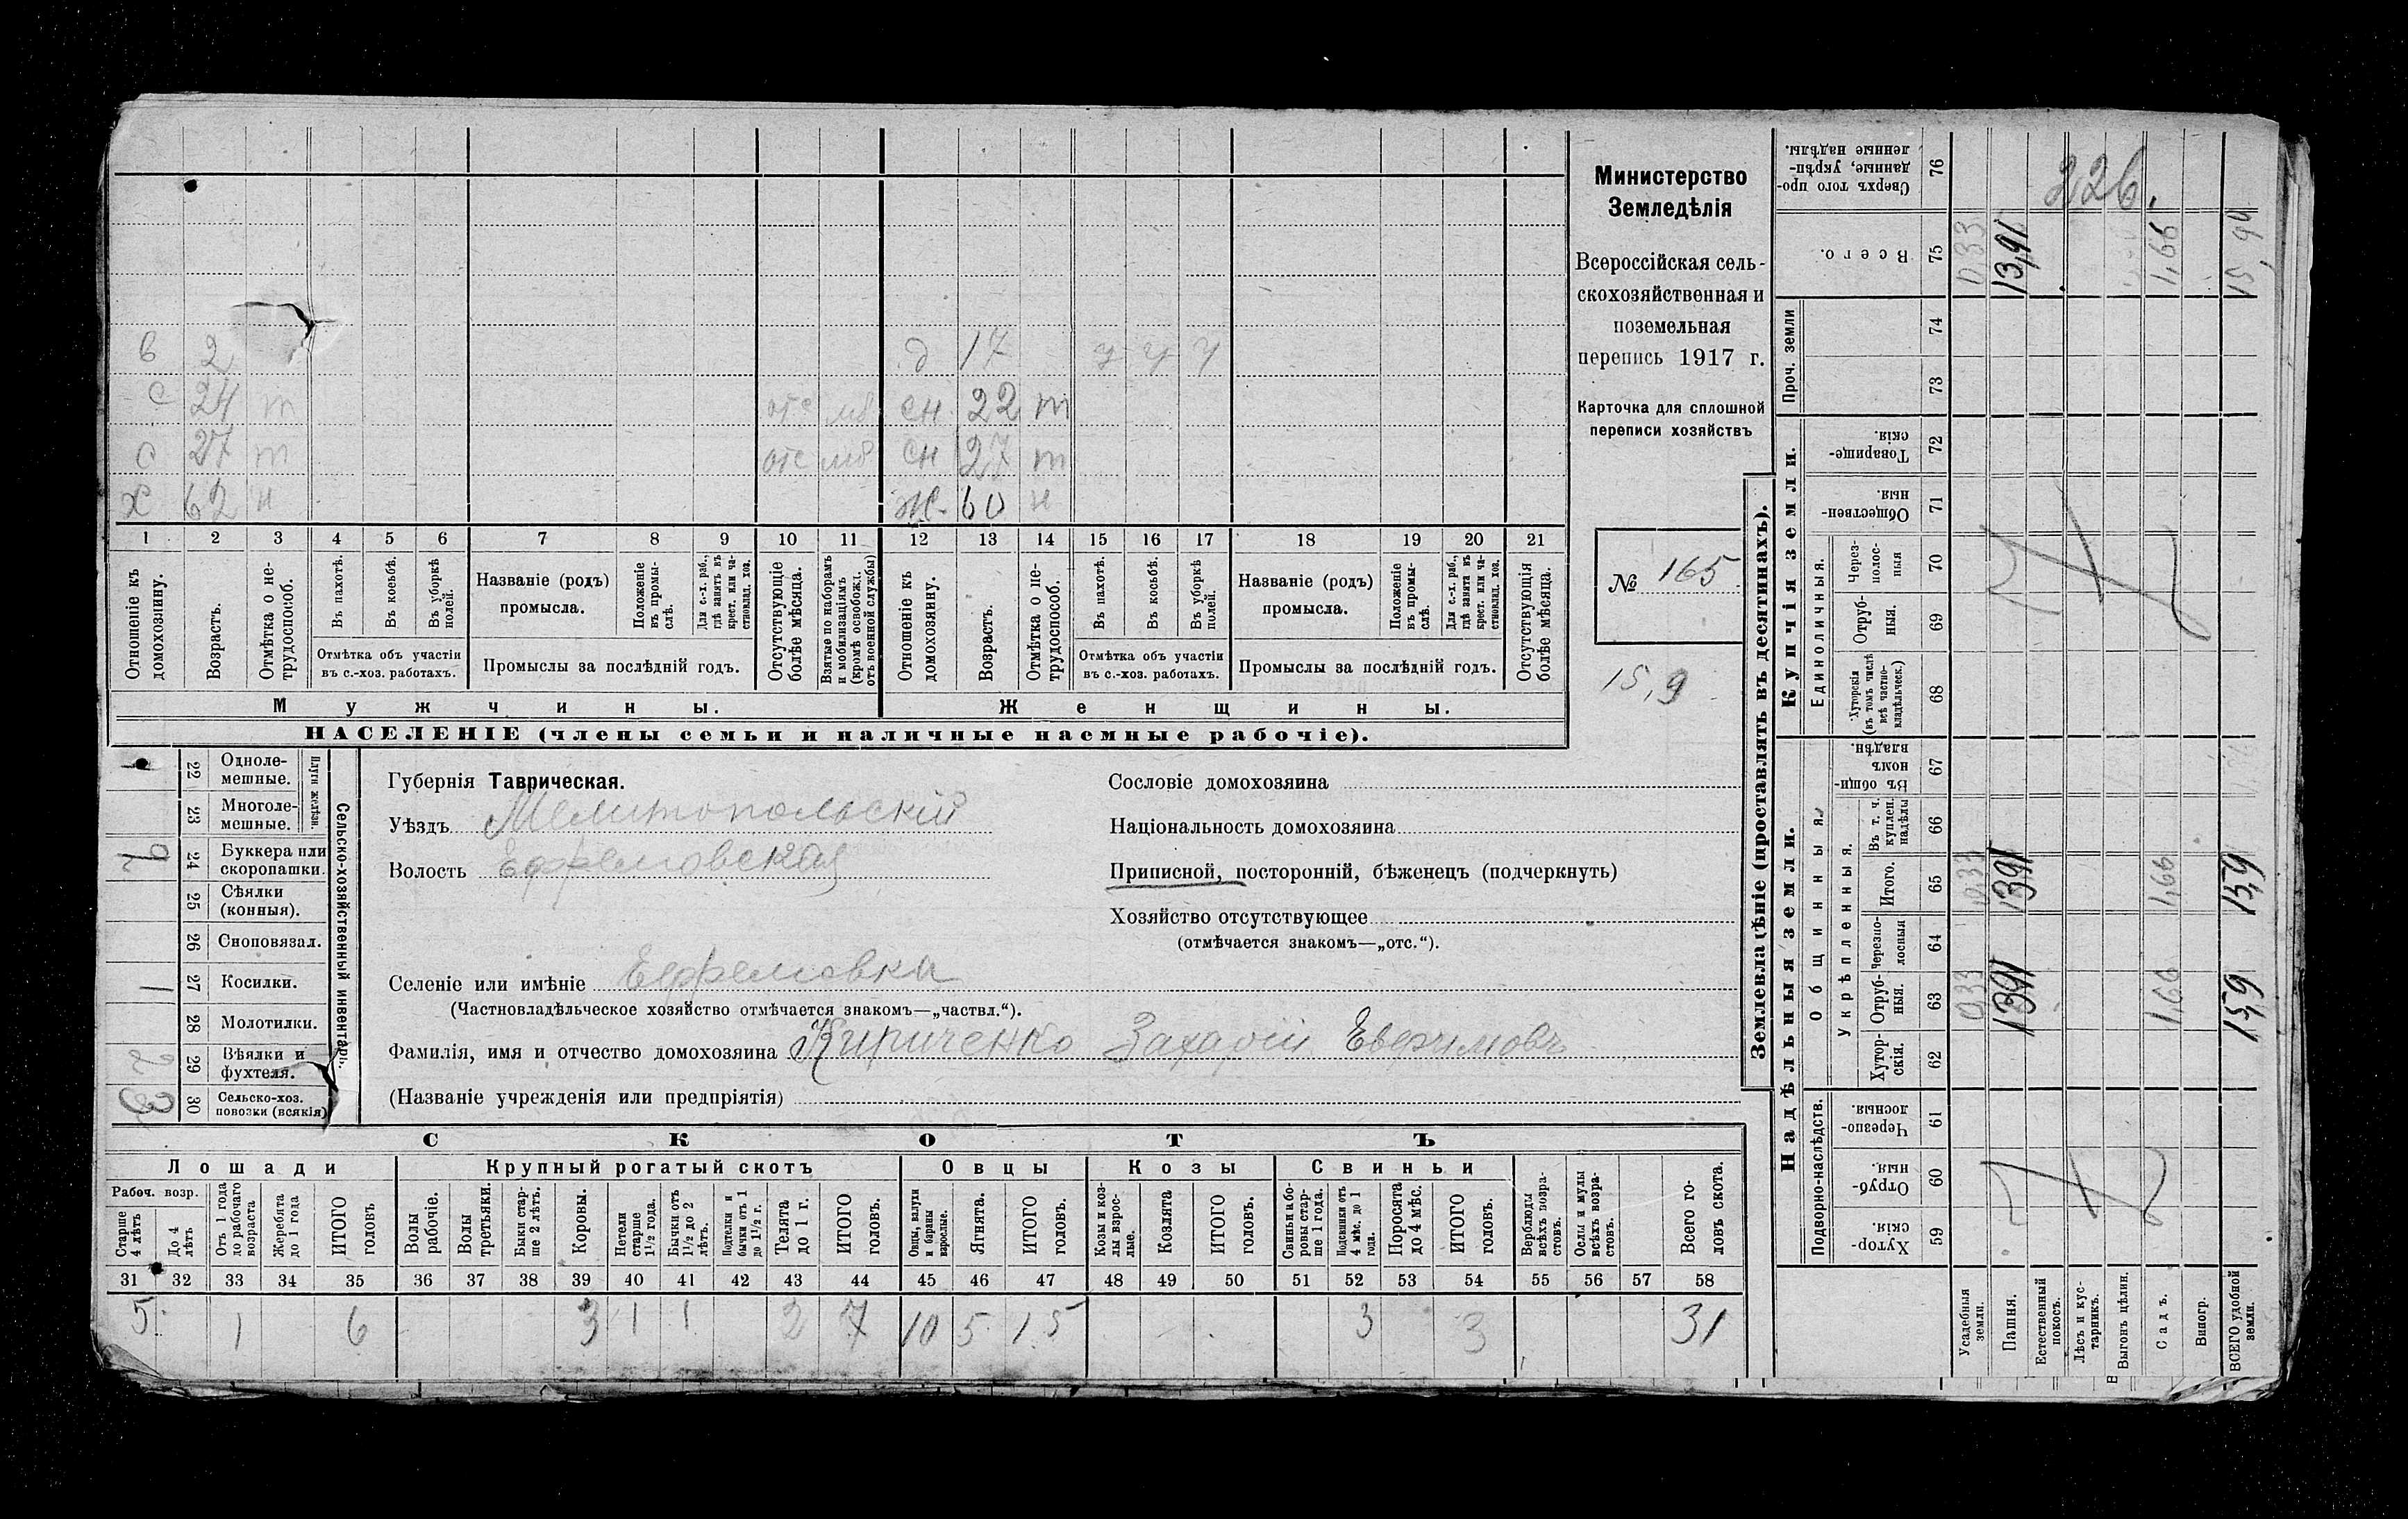 в 2 д 17 у у у
с 24 т отс мб сн 22 т
с 27 т отс мб сн 27 т
х 62 н ж 60 н
1 2 3 4 5 6 7 8 9 10 11 12 13 14 15 16 17 18 19 20 21
Отношеніе къ домохозяину.
Возрастъ.
Отмѣтка о не-трудоспособ.
Въ пахотѣ.
Въ косьбѣ.
Въ уборкѣ полей.
Отмѣтка объ участіи
въ с.-хоз. работахъ.
Названіе (родъ)
промысла.
Положеніе въ промы-слѣ.
Для с.-х. раб., гдѣ занятъ въ крест. или ча-стновлад. хоз.
Промыслы за послѣдній годъ.
Отсутствующіе болѣе мѣсяца.
Взятые по наборамъ и мобилизаціямъ (кромѣ освобожд. отъ военной службы)
Отношеніе къ домохозяину.
Возрастъ.
Отмѣтка о не-трудоспособ.
Въ пахотѣ.
Въ косьбѣ.
Въ уборкѣ полей.
Отмѣтка объ участіи
въ с.-хоз. работахъ.
Названіе (родъ)
промысла.
Положеніе въ промы-слѣ.
Для с.-х. раб., гдѣ занята въ крест. или ча-стновлад. хоз.
Промыслы за послѣдній годъ.
Отсутствующія болѣе мѣсяца.
Мужчины. Женщины.
НАСЕЛЕНІЕ (члены семьи и наличные наемные рабочіе).
Министерство
Земледѣлія
Всероссійская сель-
скохозяйственная и
поземельная
перепись 1917 г.
Карточка для сплошной
переписи хозяйствъ
№ 165
15,9
Сельско-хозяйственный инвентарь.
Плуги желѣзн.
22 Однолемешные. 1
23 Многолемешные.
24 Буккера или скоропашки.
25 Сѣялки (конныя).
26 Сноповязал.
27 Косилки. 1
28 Молотилки.
29 Вѣялки и фухтеля.
30 Сельско-хоз. повозки (всякія)
Губернія Таврическая.
Уѣздъ Мелитопольскій
Волость Ефремовская
Селеніе или имѣніе Ефремовка
(Частновладѣльческое хозяйство отмѣчается знакомъ—„частвл.“).
Фамилія, имя и отчество домохозяина Кириченко Захарій Евфимовъ
(Названіе учрежденія или предпріятія)
Сословіе домохозяина
Національность домохозяина
Приписной, посторонній, бѣженецъ (подчеркнуть)
Хозяйство отсутствующее
(отмѣчается знакомъ—„отс.“).
СКОТЪ
Лошади Крупный рогатый скотъ Овцы Козы Свиньи
Рабоч. возр.
Старше 4 лѣтъ
До 4 лѣтъ
Отъ 1 года до рабочаго возраста
Жеребята до 1 года
ИТОГО головъ
Волы рабочіе.
Волы третьяки.
Быки стар-ше 2 лѣтъ.
Коровы.
Нетели старше 1½ года.
Бычки отъ 1½ до 2 лѣтъ.
Подтелки и бычки отъ 1 до 1½ г.
Телята до 1 г.
ИТОГО головъ.
Овцы, валухи и бараны взрослые.
Ягнята.
ИТОГО головъ.
Козы и коз-лы взрос-лые.
Козлята
ИТОГО головъ.
Свиньи и бо-ровы стар-ше 1 года.
Подсвинки отъ 4 мѣс. до 1 года.
Поросята до 4 мѣс.
ИТОГО головъ.
Верблюды всѣхъ возра-стовъ.
Ослы и мулы всѣхъ возра-стовъ.
Всего го-ловъ скота.
31 32 33 34 35 36 37 38 39 40 41 42 43 44 45 46 47 48 49 50 51 52 53 54 55 56 57 58
5 1 6 3 1 1 2 7 10 5 15 3 3 31
Землевладѣніе (проставлять въ десятинахъ).
Сверхъ того про-данные, укрѣп-ленные надѣлы. 76
226.
Всего. 75
0,33 13,91 1,66 15,90
Проч. земли 74 73
Купчія земли.
Товарище-скія. 72
Обществен-ныя. 71
Единоличныя.
Через-полос-ныя 70
Отруб-ныя. 69
Хуторскія (въ томъ числѣ всѣ частно-владѣльческ.) 68
Надѣльныя земли.
Общинныя
Въ общи-номъ владѣн. 67
Укрѣпленныя.
Въ т. ч. куплен. надѣлы 66
Итого. 65
0,33 13,91 1,66 15,9
Черезпо-лосныя 64
Отруб-ныя. 63
0,33 13,91 1,66 15,9
Хутор-скія. 62
Подворно-наслѣдств.
Черезпо-лосныя. 61
Отруб-ныя. 60
Хутор-скія. 59
Усадебныя земли.
Пашня.
Естественный покосъ.
Лѣсъ и кус-тарникъ.
Выгонъ цѣлин.
Садъ.
Виногр.
ВСЕГО удобной земли.